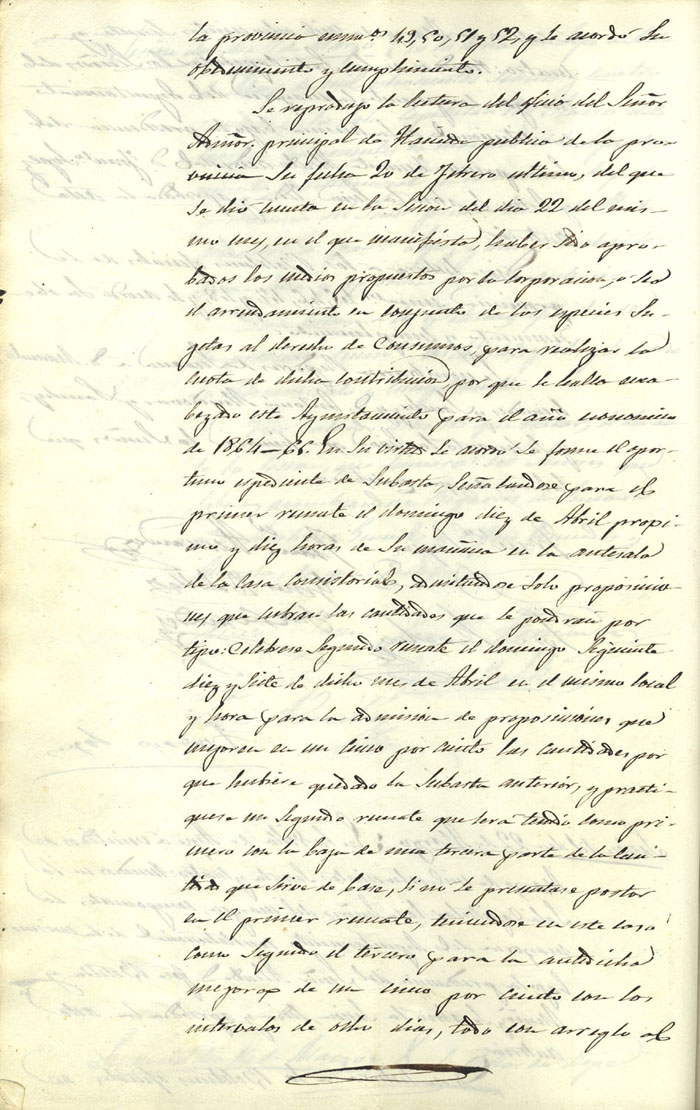 la provincia numos 49, 50, 51 y 52, y se acordó su
obedecimiento y cumplimiento.
Se reprodujo la lectura del oficio del Señor
Admor. principal de Hacienda publica de la pro-
vincia su fecha 20 de Febrero ultimo, del que
se dió cuenta en la Sesión del dia 22 del mis-
mo mes, en el que manifiesta, haber sido apro-
bados los medios propuestos por la Corporacion, o sea
el arrendamiento en conjunto de los especies su-
getas al derecho de Consumos, para realizar la
cuota de dicha contribución por que se halla enca-
bezado este Ayuntamiento para el año economico
de 1864–65. En su virtud se acordó se forme el opor-
tuno espediente de Subasta, Señalandose para el
primer remate el domingo diez de Abril proxi-
mo y diez horas de su mañana en la antesala
de la Casa Consistorial, admitiendose solo proposicio-
nes que cubran las cantidades que le pondrán por
tipo: Celebrese segundo remate el domingo siguiente
diez y siete de dicho mes de Abril en el mismo local
y hora para la admisión de proposiciónes que
mejoren en un cinco por ciento las cantidades por
que hubiese quedado la Subasta anterior, y practi-
quese un segundo remate que será tenido como pri-
mero con la baja de una tercera parte de la can-
tidad que sirve de base, si no se presentase postor
en el primer remate, teniendose en este caso
como segundo el tercero para la antedicha
mejora de un cinco por ciento con los
intervalos de ocho dias, todo con arreglo al